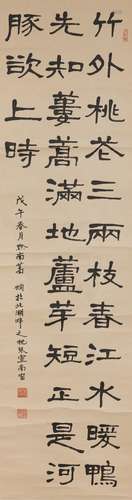 竹外桃花三兩枝春江水暖鴨
先知蔞蒿滿地蘆芽短正是河
豚欲上時
戊午春月於南菁